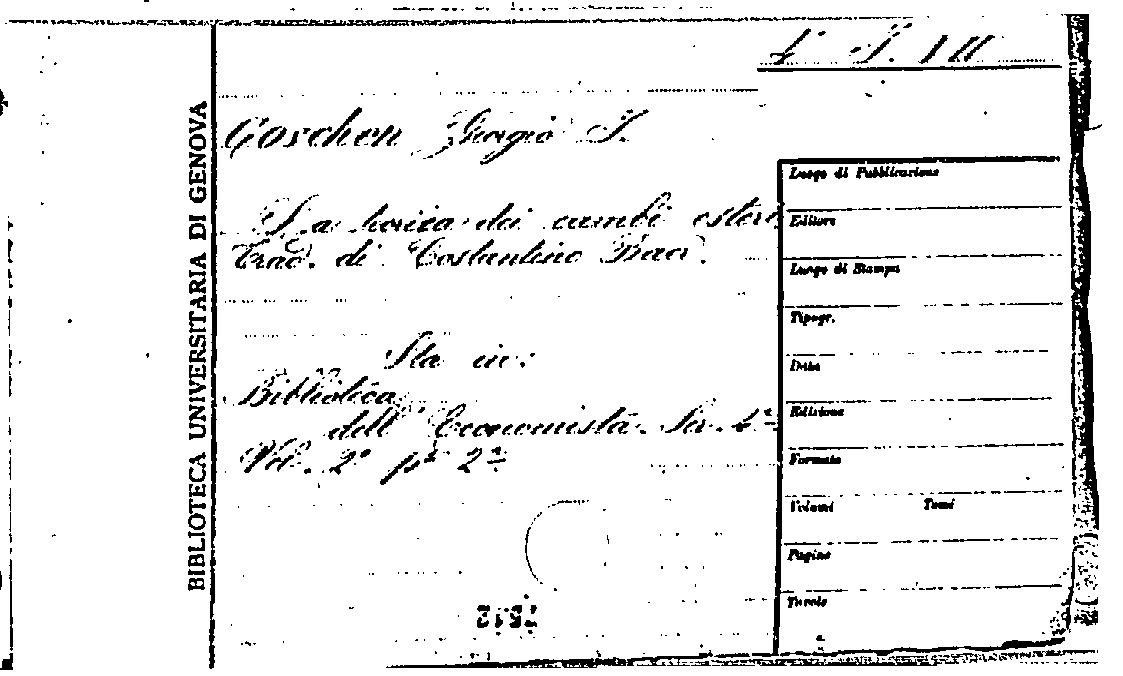 BIBLIOTECA UNIVERSITARIA DI GENOVA
Goschen Giorgio J.
La teoria dei cambi esteri
Trad. di Costantino Baer.
Sta in:
Biblioteca
dell' Economista. Ser. 4ª
Vol. 2º pte 2ª
Luogo di Pubblicazione
Editore
Luogo di Stampa
Tipogr.
Data
Edizione
Formato
Volumi Tomi
Pagine
Tavole